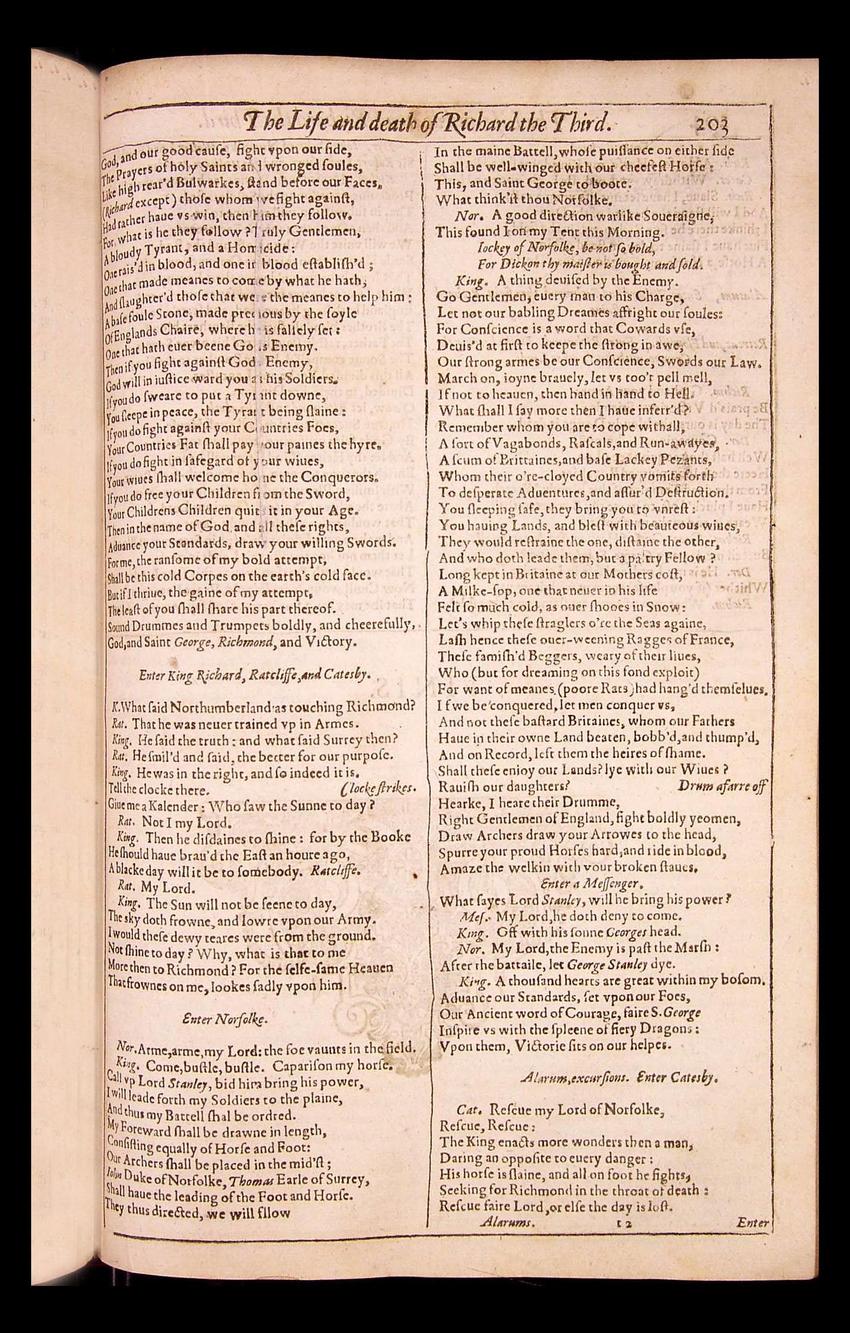 The Life and death of Richard the Third. 203
God, and our good cause, fight vpon our side,
The Prayers of holy Saints and wronged soules,
Like high rear'd Bulwarkes, stand before our Faces,
(Richard except) those whom we fight against,
Had rather haue vs win, then him they follow.
For, what is he they follow? Truly Gentlemen,
A bloudy Tyrant, and a Homicide:
One rais'd in blood, and one in blood establish'd;
One that made meanes to come by what he hath,
And slaughter'd those that were the meanes to help him:
A base foule Stone, made precious by the soyle
Of Englands Chaire, where he is falsely set:
One that hath euer beene Gods Enemy.
Then if you fight against Gods Enemy,
God will in iustice ward you as his Soldiers.
If you do sweare to put a Tyrant downe,
You sleepe in peace, the Tyrant being slaine:
If you do fight against your Countries Foes,
Your Countries Fat shall pay your paines the hyre.
If you do fight in safegard of your wiues,
Your wiues shall welcome home the Conquerors.
If you do free your Children from the Sword,
Your Childrens Children quits it in your Age.
Then in the name of God and all these rights,
Aduance your Standards, draw your willing Swords.
For me, the ransome of my bold attempt,
Shall be this cold Corpes on the earth's cold face.
But if I thriue, the gaine of my attempt,
The least of you shall share his part thereof.
Sound Drummes and Trumpets boldly, and cheerefully,
God, and Saint George, Richmond, and Victory.
Enter King Richard, Ratcliffe, and Catesby.
K. What said Northumberland as touching Richmond?
Rat. That he was neuer trained vp in Armes.
King. He said the truth: and what said Surrey then?
Rat. He smil'd and said, the better for our purpose.
King. He was in the right, and so indeed it is.
Tell the clocke there. Clocke strikes.
Giue me a Kalender: Who saw the Sunne to day?
Rat. Not I my Lord.
King. Then he disdaines to shine: for by the Booke
He should haue brau'd the East an houre ago,
A blacke day will it be to somebody. Ratcliffe.
Rat. My Lord.
King. The Sun will not be seene to day,
The sky doth frowne, and lowre vpon our Army.
I would these dewy teares were from the ground.
Not shine to day? Why, what is that to me
More then to Richmond? For the selfe-same Heauen
That frownes on me, lookes sadly vpon him.
Enter Norfolke.
Nor. Arme, arme, my Lord: the foe vaunts in the field.
King. Come, bustle, bustle. Caparison my horse.
Call vp Lord Stanley, bid him bring his power,
I will leade forth my Soldiers to the plaine,
And thus my Battell shal be ordred.
My Foreward shall be drawne in length,
Consisting equally of Horse and Foot:
Our Archers shall be placed in the mid'st;
Iohn Duke of Norfolke, Thomas Earle of Surrey,
Shall haue the leading of the Foot and Horse.
They thus directed, we will fllow
In the maine Battell, whose puissance on either side
Shall be well-winged with our cheefest Horse:
This, and Saint George to boote.
What think'st thou Norfolke.
Nor. A good direction warlike Soueraigne,
This found I on my Tent this Morning.
Iockey of Norfolke, be not so bold,
For Dickon thy maister is bought and sold.
King. A thing deuised by the Enemy.
Go Gentlemen, euery man to his Charge,
Let not our babling Dreames affright our soules:
For Conscience is a word that Cowards vse,
Deuis'd at first to keepe the strong in awe,
Our strong armes be our Conscience, Swords our Law.
March on, ioyne brauely, let vs too't pell mell,
If not to heauen, then hand in hand to Hell.
What shall I say more then I haue inferr'd?
Remember whom you are to cope withall,
A sort of Vagabonds, Rascals, and Run-awayes,
A scum of Brittaines, and base Lackey Pezants,
Whom their o're-cloyed Country vomits forth
To desperate Aduentures, and assur'd Destruction.
You sleeping safe, they bring you to vnrest:
You hauing Lands, and blest with beauteous wiues,
They would restraine the one, distaine the other,
And who doth leade them, but a paltry Fellow?
Long kept in Britaine at our Mothers cost,
A Milke-sop, one that neuer in his life
Felt so much cold, as ouer shooes in Snow:
Let's whip these straglers o're the Seas againe,
Lash hence these ouer-weening Ragges of France,
These famish'd Beggers, weary of their liues,
Who (but for dreaming on this fond exploit)
For want of meanes (poore Rats) had hang'd themselues.
If we be conquered, let men conquer vs,
And not these bastard Britaines, whom our Fathers
Haue in their owne Land beaten, bobb'd, and thump'd,
And on Record, left them the heires of shame.
Shall these enioy our Lands? lye with our Wiues?
Rauish our daughters? Drum afarre off
Hearke, I heare their Drumme,
Right Gentlemen of England, fight boldly yeomen,
Draw Archers draw your Arrowes to the head,
Spurre your proud Horses hard, and ride in blood,
Amaze the welkin with your broken staues.
Enter a Messenger.
What sayes Lord Stanley, will he bring his power?
Mes. My Lord, he doth deny to come.
King. Off with his sonne Georges head.
Nor. My Lord, the Enemy is past the Marsh:
After the battaile, let George Stanley dye.
King. A thousand hearts are great within my bosom.
Aduance our Standards, set vpon our Foes,
Our Ancient word of Courage, faire S. George
Inspire vs with the spleene of fiery Dragons:
Vpon them, Victorie sits on our helpes.
Alarum, excursions. Enter Catesby.
Cat. Rescue my Lord of Norfolke,
Rescue, Rescue:
The King enacts more wonders then a man,
Daring an opposite to euery danger:
His horse is slaine, and all on foot he fights,
Seeking for Richmond in the throat of death:
Rescue faire Lord, or else the day is lost.
Alarums. t 2 Enter